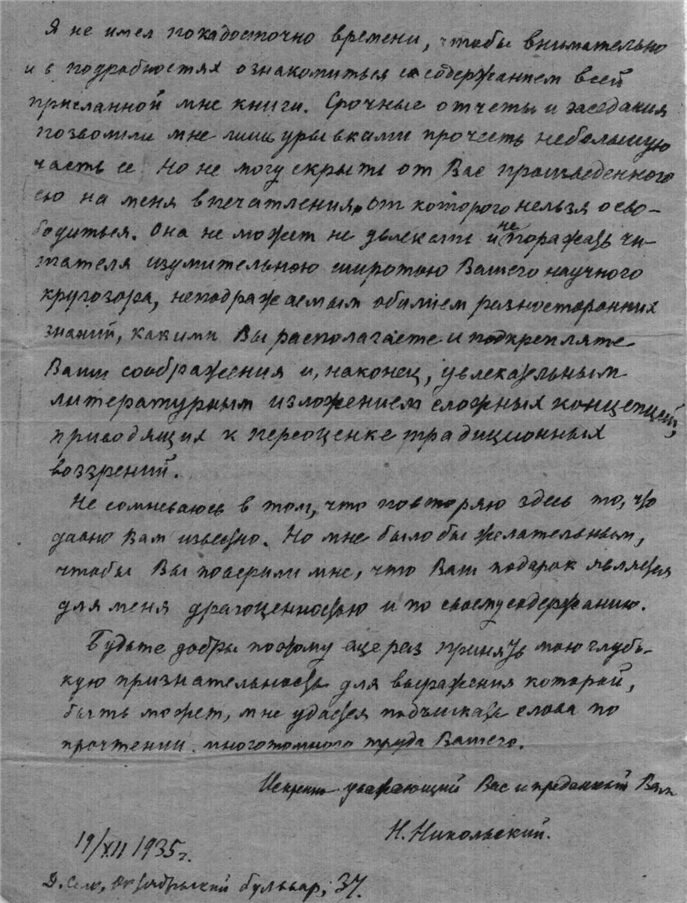 Я не имел пока достаточно времени, чтобы внимательно
и в подробностях ознакомиться с содержанием всей
присланной мне книги. Срочные отчеты и заседания
позволили мне лишь урывками прочесть небольшую
часть ее. Но не могу скрыть от Вас произведенного
ею на меня впечатления, от которого нельзя осво-
бодиться. Она не может не увлекать и не поражать чи-
тателя изумительною широтою Вашего научного
кругозора, неподражаемым обилием разносторонних
знаний, какими Вы располагаете и подкрепляете
Ваши соображения и, наконец, увлекательным
литературным изложением сложных концепций,
приводящих к переоценке традиционных
воззрений.
Не сомневаюсь в том, что повторяю здесь то, что
давно Вам известно. Но мне было бы желательным,
чтобы Вы поверили мне, что Ваш подарок является
для меня драгоценностью и по своему содержанию.
Будьте добры поэтому еще раз принять мою глубо-
кую признательность для выражения которой,
быть может, мне удастся подыскать слова по
прочтении многотомного труда Вашего.
Искренно уважающий Вас и преданный Вам
Н. Никольский.
19/XII 1935 г.
Д. Село, Октябрьский бульвар, 37.